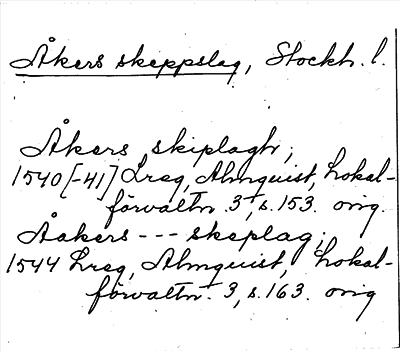 Åkers skeppslag, Stockh. l.
Åkers skiplagh;
1540[-41] Lreg, Almquist, Lokal-
förvaltn. 3, s. 153. orig.
Aakers --- skeplag;
1544 Lreg, Almquist, Lokal-
förvaltn. 3, s. 163. orig